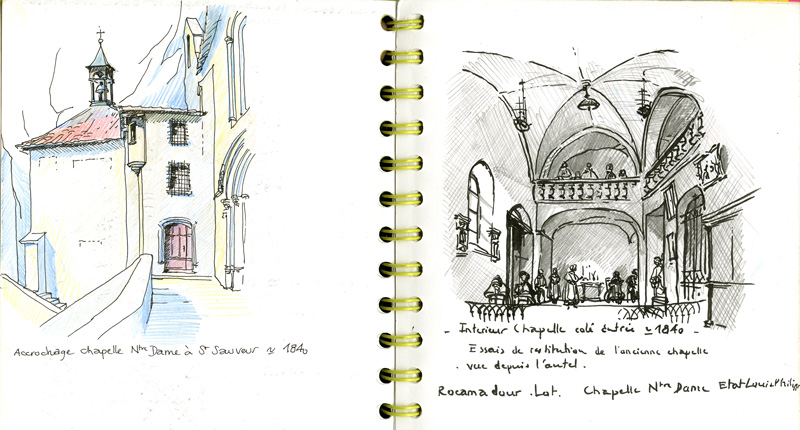 Accrochage chapelle Ntre Dame à St Sauveur ≃ 1840
- Interieur Chapelle coté éntrée ≃ 1840 -
Essais de restitution de l'ancienne chapelle
. vue depuis l'autel.
Rocamadour . Lot. Chapelle Ntre Dame Etat Louis Philippe